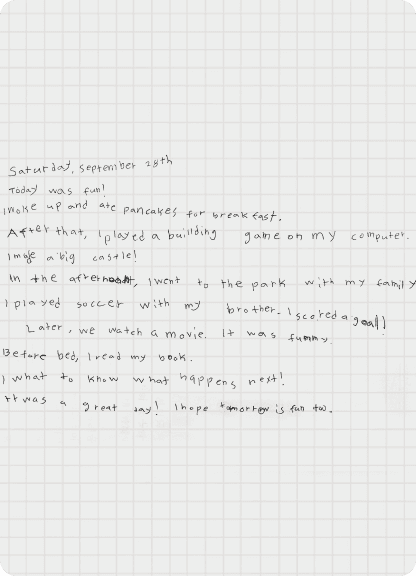 Saturday, September 28th
Today was fun!
I woke up and ate pancakes for breakfast.
After that, I played a building game on my computer.
I made a big castle!
In the afternoon, I went to the park with my family
I played soccer with my brother. I scored a goal!
Later, we watch a movie. It was funny.
Before bed, I read my book.
I what to know what happens next!
It was a great day! I hope tomorrow is fun too.